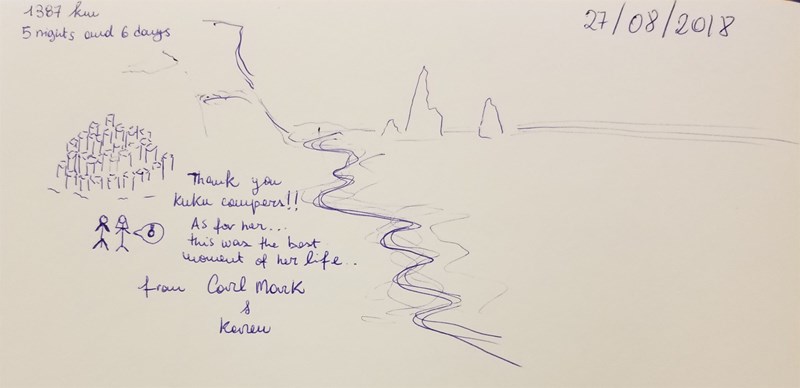 1387 km
5 nights and 6 days
27/08/2018
Thank you
kuku campers!!
As for her...
this was the best
moment of her life..
from Carl Mark
&
Karen